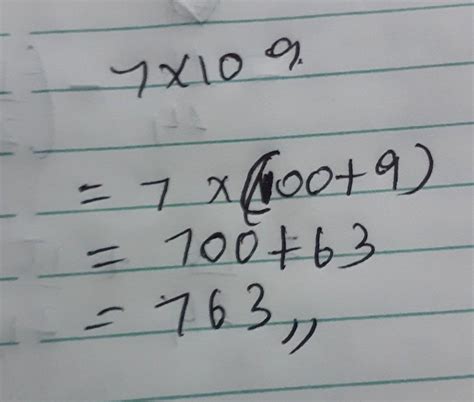 7×109
= 7 × (100+9)
= 700+63
= 763,,